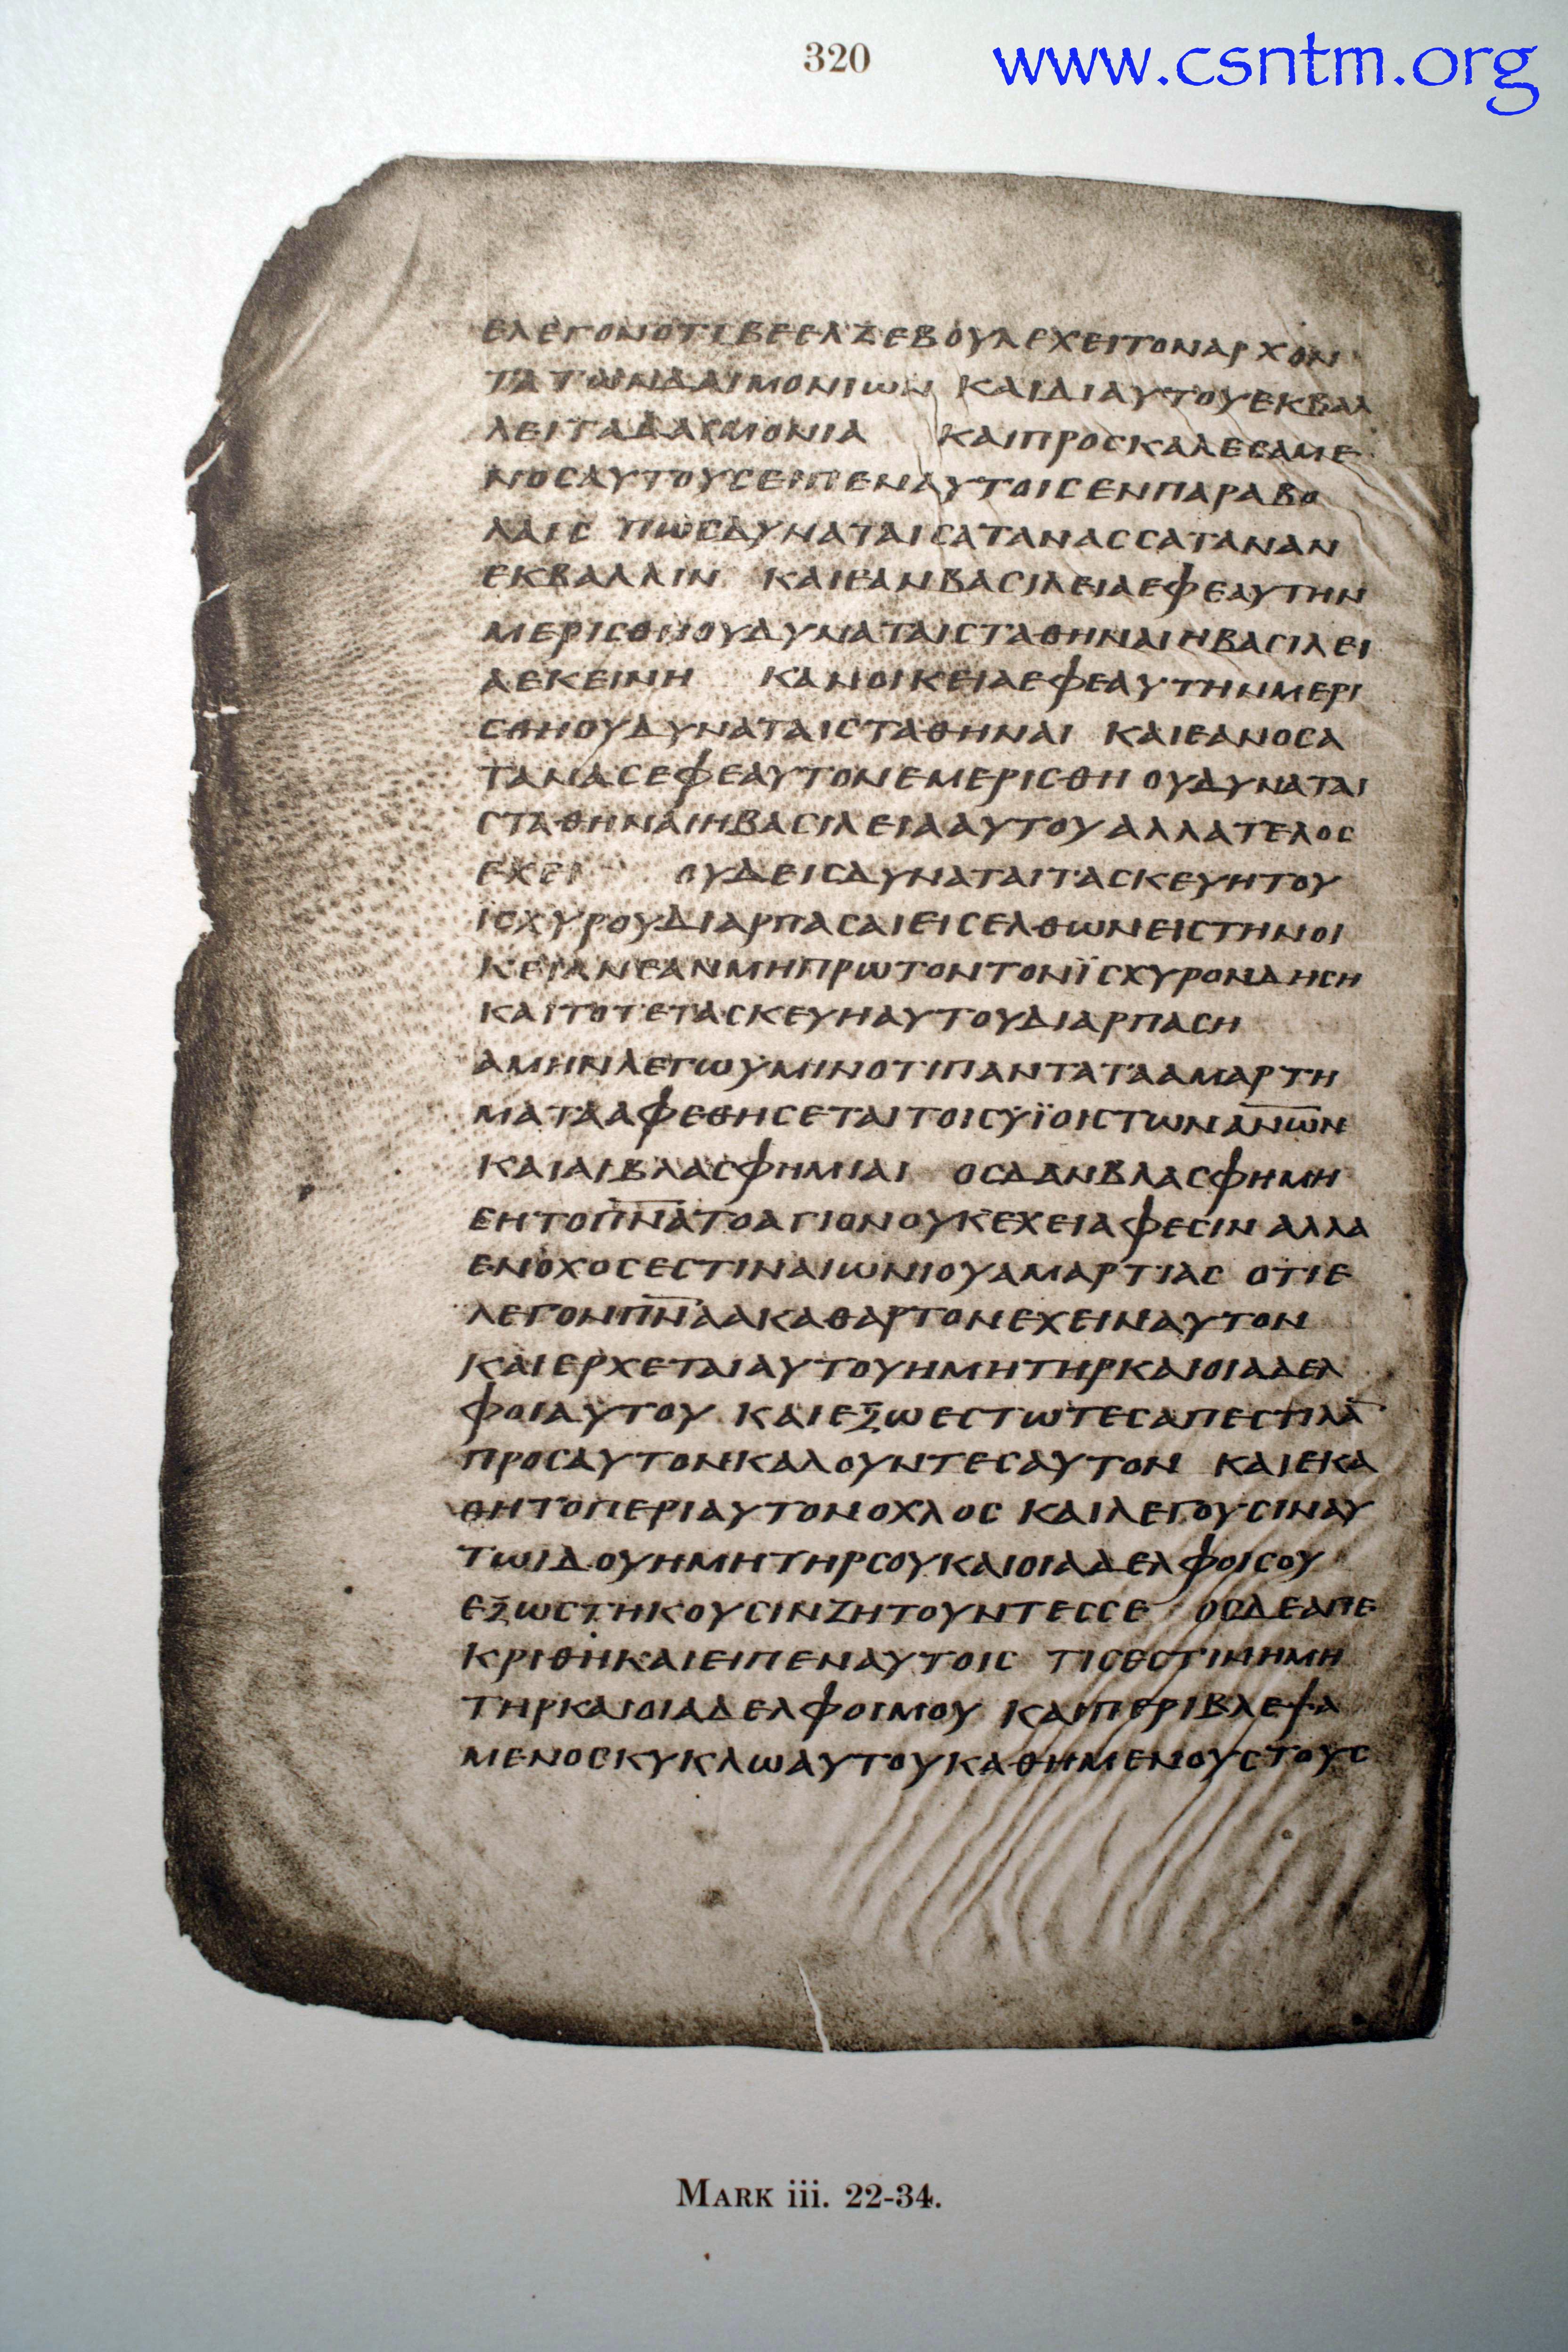 320
www.csntm.org
ΕΛΕΓΟΝΟΤΙΒΕΕΛΖΕΒΟΥΛΕΧΕΙΤΟΝΑΡΧΟΝ
ΤΑΤΩΝΔΑΙΜΟΝΙΩΝ ΚΑΙΔΙΑΥΤΟΥΕΚΒΑΛ
ΛΕΙΤΑΔΑΙΜΟΝΙΑ ΚΑΙΠΡΟΣΚΑΛΕΣΑΜΕ
ΝΟΣΑΥΤΟΥΣΕΙΠΕΝΑΥΤΟΙΣΕΝΠΑΡΑΒΟ
ΛΑΙΣ ΠΩΣΔΥΝΑΤΑΙΣΑΤΑΝΑΣΣΑΤΑΝΑΝ
ΕΚΒΑΛΛΙΝ ΚΑΙΕΑΝΒΑΣΙΛΕΙΑΕΦΕΑΥΤΗΝ
ΜΕΡΙΣΘΗΟΥΔΥΝΑΤΑΙΣΤΑΘΗΝΑΙΗΒΑΣΙΛΕΙ
ΑΕΚΕΙΝΗ ΚΑΝΟΙΚΕΙΑΕΦΕΑΥΤΗΝΜΕΡΙ
ΣΘΗΟΥΔΥΝΑΤΑΙΣΤΑΘΗΝΑΙ ΚΑΙΕΑΝΟΣΑ
ΤΑΝΑΣΕΦΕΑΥΤΟΝΕΜΕΡΙΣΘΗ ΟΥΔΥΝΑΤΑΙ
ΣΤΑΘΗΝΑΙΗΒΑΣΙΛΕΙΑΑΥΤΟΥΑΛΛΑΤΕΛΟΣ
ΕΧΕΙ ΟΥΔΕΙΣΔΥΝΑΤΑΙΤΑΣΚΕΥΗΤΟΥ
ΙΣΧΥΡΟΥΔΙΑΡΠΑΣΑΙΕΙΣΕΛΘΩΝΕΙΣΤΗΝΟΙ
ΚΕΙΑΝΕΑΝΜΗΠΡΩΤΟΝΤΟΝΪΣΧΥΡΟΝΔΗΣΗ
ΚΑΙΤΟΤΕΤΑΣΚΕΥΗΑΥΤΟΥΔΙΑΡΠΑΣΗ
ΑΜΗΝΛΕΓΩΥΜΙΝΟΤΙΠΑΝΤΑΤΑΑΜΑΡΤΗ
ΜΑΤΑΑΦΕΘΗΣΕΤΑΙΤΟΙΣΥΪΟΙΣΤΩΝΑ̅Ν̅Ω̅Ν̅
ΚΑΙΑΙΒΛΑΣΦΗΜΙΑΙ ΟΣΔΑΝΒΛΑΣΦΗΜΗ
ΕΗΤΟΠ̅Ν̅Α̅ΤΟΑΓΙΟΝΟΥΚΕΧΕΙΑΦΕΣΙΝ ΑΛΛΑ
ΕΝΟΧΟΣΕΣΤΙΝΑΙΩΝΙΟΥΑΜΑΡΤΙΑΣ ΟΤΙΕ
ΛΕΓΟΝΠ̅Ν̅Α̅ΑΚΑΘΑΡΤΟΝΕΧΕΙΝΑΥΤΟΝ
ΚΑΙΕΡΧΕΤΑΙΑΥΤΟΥΗΜΗΤΗΡΚΑΙΟΙΑΔΕΛ
ΦΟΙΑΥΤΟΥ ΚΑΙΕΞΩΕΣΤΩΤΕΣΑΠΕΣΤΙΛΑ̅
ΠΡΟΣΑΥΤΟΝΚΑΛΟΥΝΤΕΣΑΥΤΟΝ ΚΑΙΕΚΑ
ΘΗΤΟΠΕΡΙΑΥΤΟΝΟΧΛΟΣ ΚΑΙΛΕΓΟΥΣΙΝΑΥ
ΤΩΙΔΟΥΗΜΗΤΗΡΣΟΥΚΑΙΟΙΑΔΕΛΦΟΙΣΟΥ
ΕΞΩΣΤΗΚΟΥΣΙΝΖΗΤΟΥΝΤΕΣΣΕ ΟΣΔΕΑΠΕ
ΚΡΙΘΗΚΑΙΕΙΠΕΝΑΥΤΟΙΣ ΤΙΣΕΣΤΙΝΗΜΗ
ΤΗΡΚΑΙΟΙΑΔΕΛΦΟΙΜΟΥ ΚΑΙΠΕΡΙΒΛΕΨΑ
ΜΕΝΟΣΚΥΚΛΩΑΥΤΟΥΚΑΘΗΜΕΝΟΥΣΤΟΥΣ
MARK iii. 22-34.